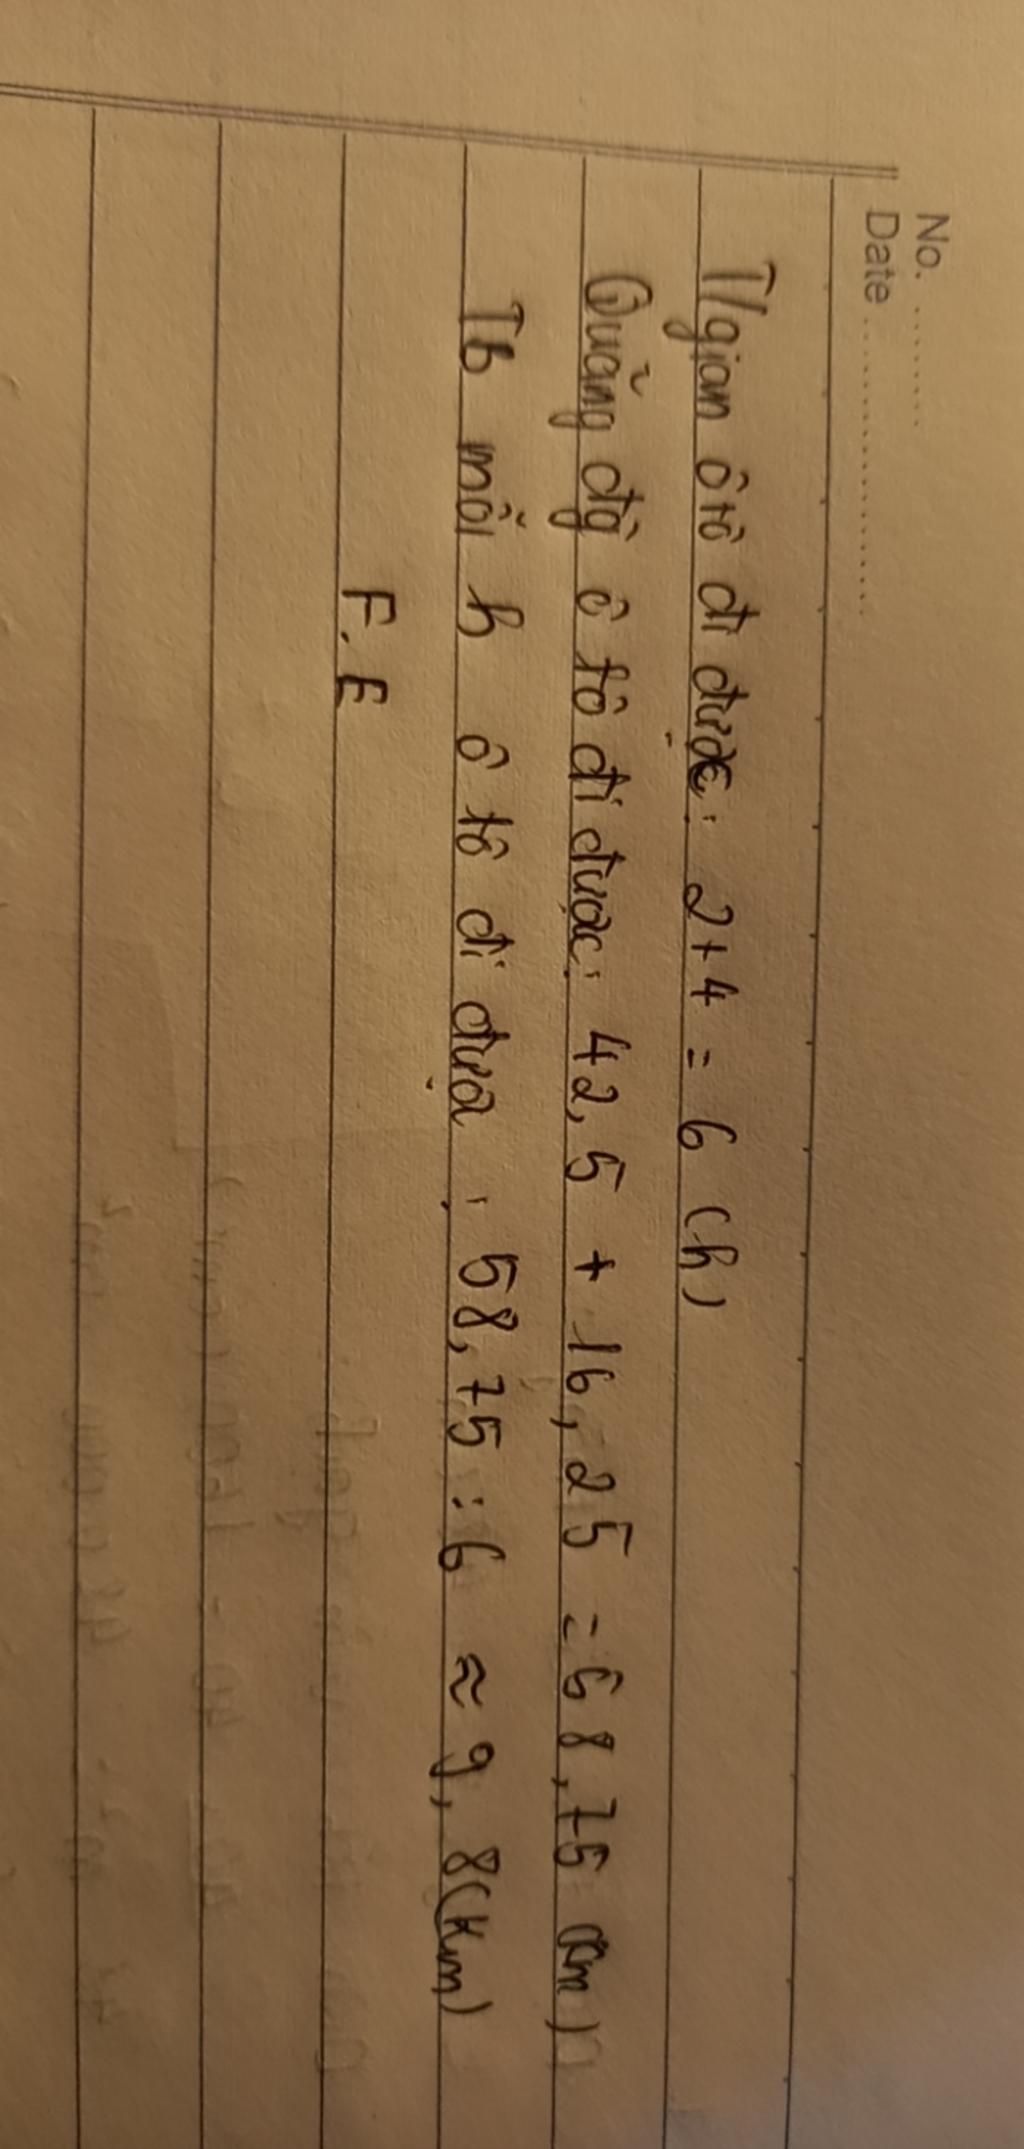 No. ........
Date ....................
T/gian ôtô đi được: 2+4 = 6 (h)
Quãng đg ô tô đi được: 42,5 + 16,25 = 68,75 (km)
Tb mỗi h ô tô đi được : 58,75 : 6 ≈ 9,8(Km)
F.E